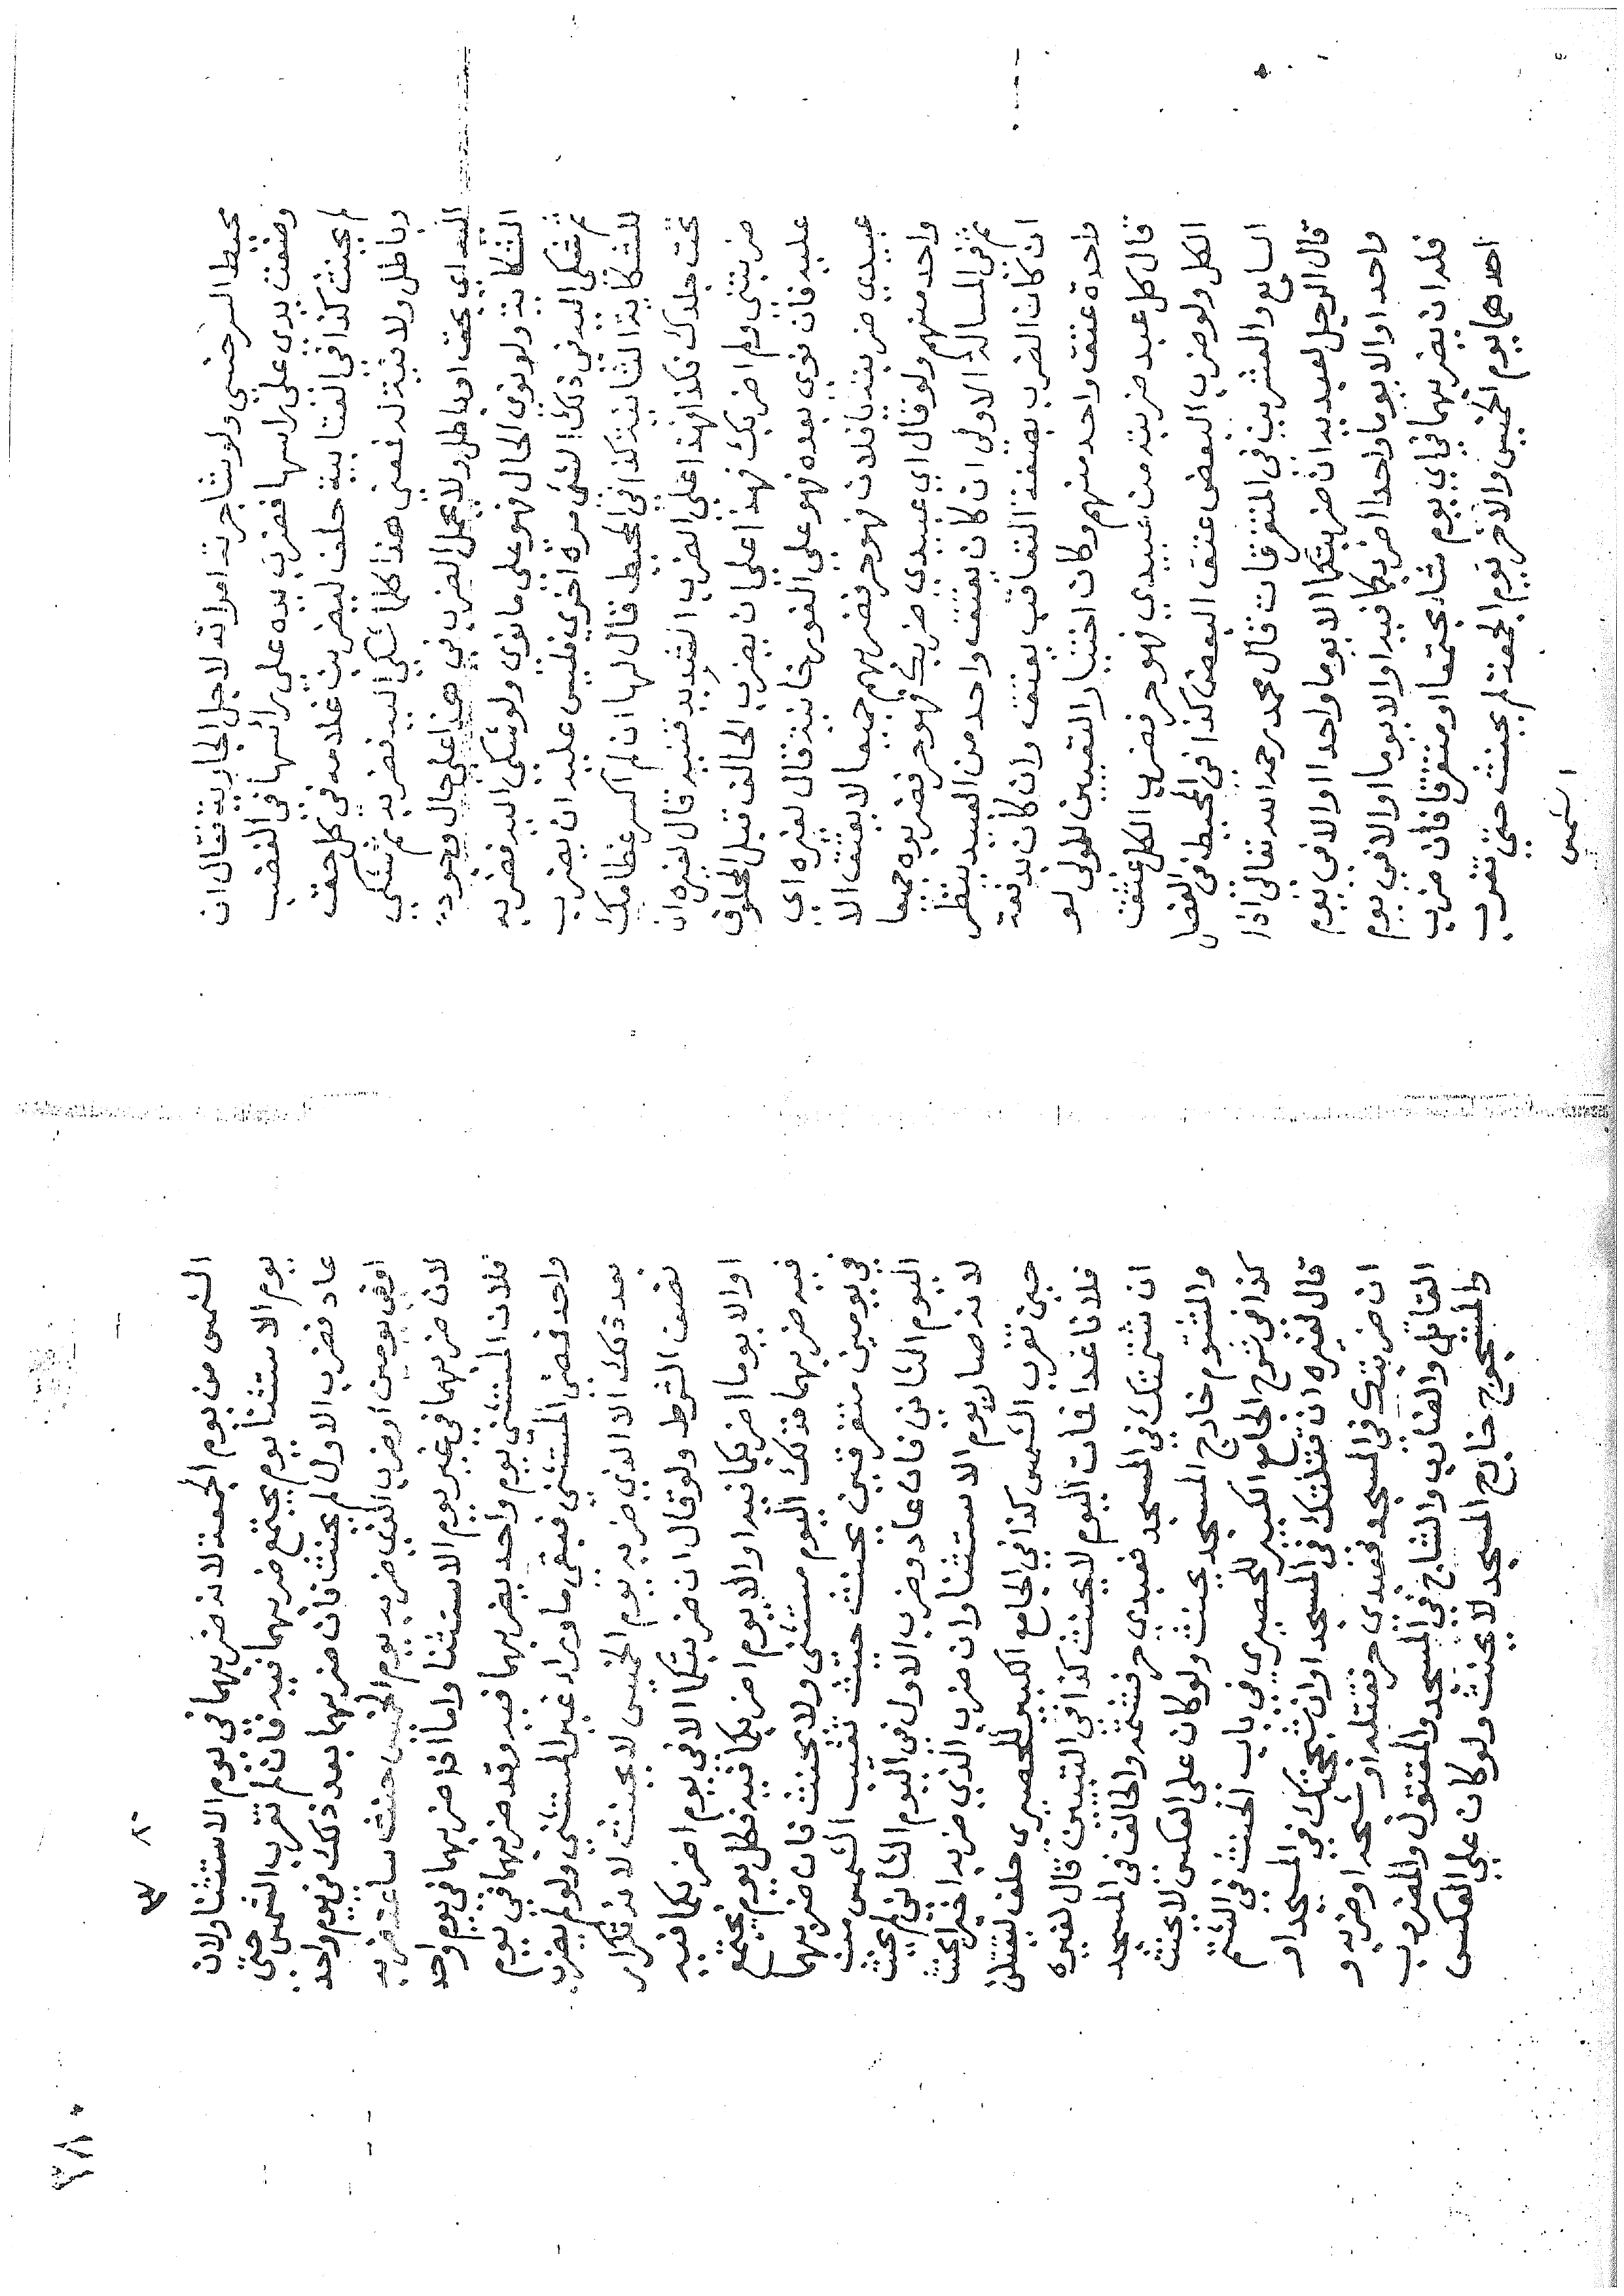 محيط السرخسي ولو شاجرته امراته لاجل الجارية فقال ان
وضعت يدي على راسها فضرب بيده على راسها في الغضب
لم يحنث كذا في الغيابية حلف ليضربن غلامه في كل حق
وباطل ولا نية له فمعنى هذا كلما شكي اليه فضربه ثم شكي
اليه اي بحق او باطل ولا يحمل الضرب في هذا على حال وجود
الشكاية ولو نوى الحال فهو على ما نوى ولو شكي اليه فضربه
ثم شكي اليه في ذلك الشئ مرة اخري فليس عليه ان يضرب
للشكاية الثانية كذا في المحيط قال لها ان لم اكسر عظامك
تحت جلدك فكذا فهذا على الضرب الشديد قنيه قال لغيره ان
ضربتني ولم اضربك فهذا على ان يضرب الحالف قبل المحلوف
عليه فان نوى بعده فهو على الفور خانية قال لغيره اي
عبيدي ضربته يا فلان فهو حر فضربهم جميعا لا يعتق الا
واحد منهم ولو قال اي عبيدي ضربك فهو حر فضربوه جميعا
ثم في المسالة الاولى ان كان يعتق واحد من العبيد ينظر
ان كان الضرب بصفة التعاقب يعتق وان كان بدفعة
واحدة عتق واحد منهم وكان اختيار التعيين للمولى لو
قال كل عبد ضربته من عبيدي فهو حر فضرب الكل عتق
الكل ولو ضرب البعض عتق البعض كذا في المحيط في الفصل
السابع والعشرين في المتفرقات قال محمد رحمه الله تعالى اذا
قال الرجل لعبديه ان ضربتكما الا يوما واحدا او الا في يوم
واحد او الا يوما واحدا اضربكما فيه او الا يوما او الا في يوم
فله ان يضربهما في اي يوم شا مجتمعا او متفرقا فان ضرب
احدهما يوم الخميس والاخر يوم الجمعة لم يحنث حتى تغرب
الشمس
٢٨٠
الشمس من يوم الجمعة لانه ضربهما في يوم الاستثنا ولان
يوم الاستثنا يوم يجتمع ضربهما فيه فان لم تغرب الشمس حتى
عاد فضرب الاول لم يحنث فان ضربهما بعد ذلك في يوم واحد
او في يومين او ضرب الذي ضربه يوم الخميس حنث ساعة ضربه
لان ضربهما في غير يوم الاستثنا واما اذا ضربهما في يوم واحد
فلان المستثنى يوم واحد يضربهما فيه وقد ضربهما في يوم
واحد فمضى المستثنى فبقي ما وراه غير المستثنى ولو لم يضرب
بعد ذلك الا الذي ضربه يوم الخميس لا يحنث لانه تكرار
نصف الشرط ولو قال ان ضربتكما الا في يوم اضربكما فيه
او الا يوما اضربكما فيه او الا يوم اضربكما فيه فكل يوم يجتمع
فيه ضربهما فذلك اليوم مستثنى ولا يحنث فان ضربهما
في يومين متفرقين يحنث حيث تغيب الشمس من
اليوم الثاني فان عاد وضرب الاول في اليوم الثاني لم يحنث
لانه صار يوم الاستثنا وان ضرب الذي ضربه اخيرا يحنث
حين تغرب الشمس كذا في الجامع الكبير للحصيري حلف ليقتلن
فلانا غدا فمات اليوم لا يحنث كذا في التبيين قال لغيره
ان شتمتك في المسجد فعبدي حر فشتمه والحالف في المسجد
والمشتوم خارج المسجد يحنث ولو كان على العكس لا يحنث
كذا في شرح الجامع الكبير للحصيري في باب الحنث في الشتم
قال لغيره ان قتلتك في المسجد او ان شججتك في المسجد او
ان ضربتك في المسجد فعبدي حر فقتله او شجه او ضربه و
القاتل والضارب والشاج في المسجد والمقتول والمضروب
والمشجوج خارج المسجد لا يحنث ولو كان على العكس